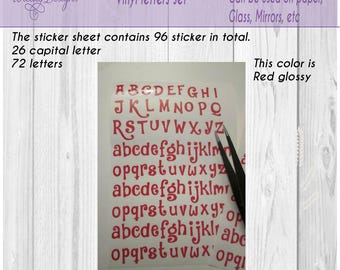 Vinyl letters set
Can be used on paper,
Glass, Mirrors, etc
The sticker sheet contains 96 sticker in total.
26 capital letter
72 letters
This color is
Red glossy
ABCDEFGHI
JKLMNOPQ
RSTUVWXYZ
abcdefghijklm
opqrstuvwxyz
abcdefghijkl
opqrstuvwxy
abcdefghijkl
opqrstuvwx